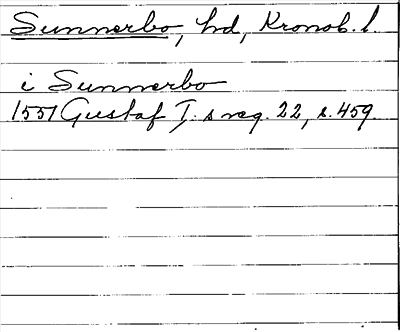 Sunnerbo, hd, Kronob. l.
i Sunnerbo
1551 Gustaf I:s reg. 22, s. 459